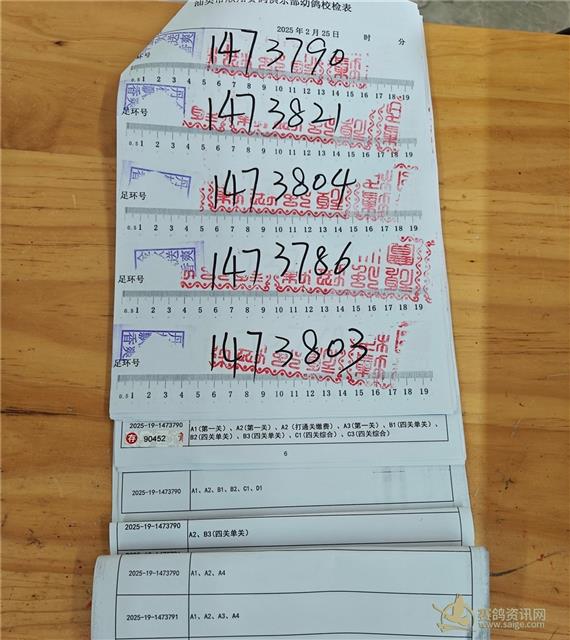 2025年2月25日 时 分
1473790
0.5 1 2 3 4 5 6 7 8 9 10 11 12 13 14 15 16 17 18 19
足环号 1473821
0.5 1 2 3 4 5 6 7 8 9 10 11 12 13 14 15 16 17 18 19
足环号 1473804
0.5 1 2 3 4 5 6 7 8 9 10 11 12 13 14 15 16 17 18 19
足环号 1473786
0.5 1 2 3 4 5 6 7 8 9 10 11 12 13 14 15 16 17 18 19
足环号 1473803
0.5 1 2 3 4 5 6 7 8 9 10 11 12 13 14 15 16 17 18 19
2025-19-1473790 A1(第一关)、A2(第一关)、A2(打通关缴费)、A3(第一关)、B1(四关单关)、
存 90452 B2(四关单关)、B3(四关单关)、C1(四关综合)、C3(四关综合)
6
2025-19-1473790 A1、A2、B1、B2、C1、D1
2025-19-1473790 A2、B3(四关单关)
2025-19-1473790 A1、A2、A4
2025-19-1473791 A1、A2、A3、A4
赛鸽资讯网
www.saige.com